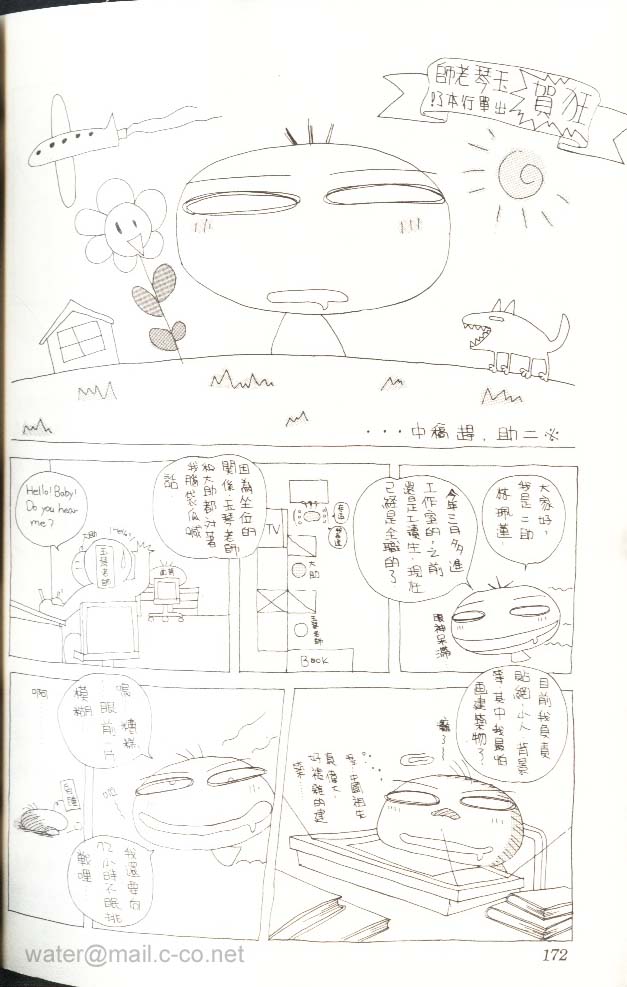 狂賀
玉琴老師
出單行本了!!
※二助．趕稿中...
大家好，
我是二助
林珮蓳．
眼神呆滯
今年三月多進
工作室的，之前
還是工讀生，現在
已經是全職的了
TV
大助
玉琴老師
Book
因為坐位的
關係，玉琴老師
和大助都對著
我腦袋瓜喊
話
Hello! Baby!
Do you hear
me?
Hello!
大助
玉琴老師
目前我負責
貼網、小人、背景
等，其中我最怕
畫建築物了…
哇…中國祖先
真偉大，
好複雜的建
築…
唉，糟糕，
眼前一片
模糊
我還要向
72小時不眠挑
戰哩
啊
water@mail.c-co.net
172